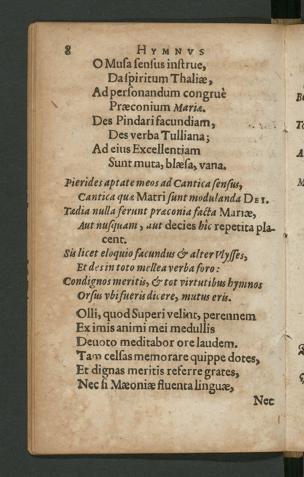 8 HYMNVS
O Musa sensus instrue,
Da spiritum Thaliæ,
Ad personandum congruè
Præconium Mariæ.
Des Pindari facundiam,
Des verba Tulliana;
Ad eius Excellentiam
Sunt muta, blæsa, vana.
Pierides aptate meos ad Cantica sensus,
Cantica quæ Matri sunt modulanda DEI.
Tædia nulla ferunt præconia facta MARIÆ,
Aut nusquam, aut decies hîc repetita pla-
cent.
Sis licet eloquio facundus & alter Vlysses,
Et des in toto mellea verba foro:
Condignos meritis, & tot virtutibus hymnos
Orsus vbi fueris dicere, mutus eris.
Olli, quod Superi velint, perennem
Ex imis animi mei medullis
Deuoto meditabor ore laudem.
Tam celsas memorare quippe dotes,
Et dignas meritis referre grates,
Nec si Mæoniæ fluenta linguæ,
Nec